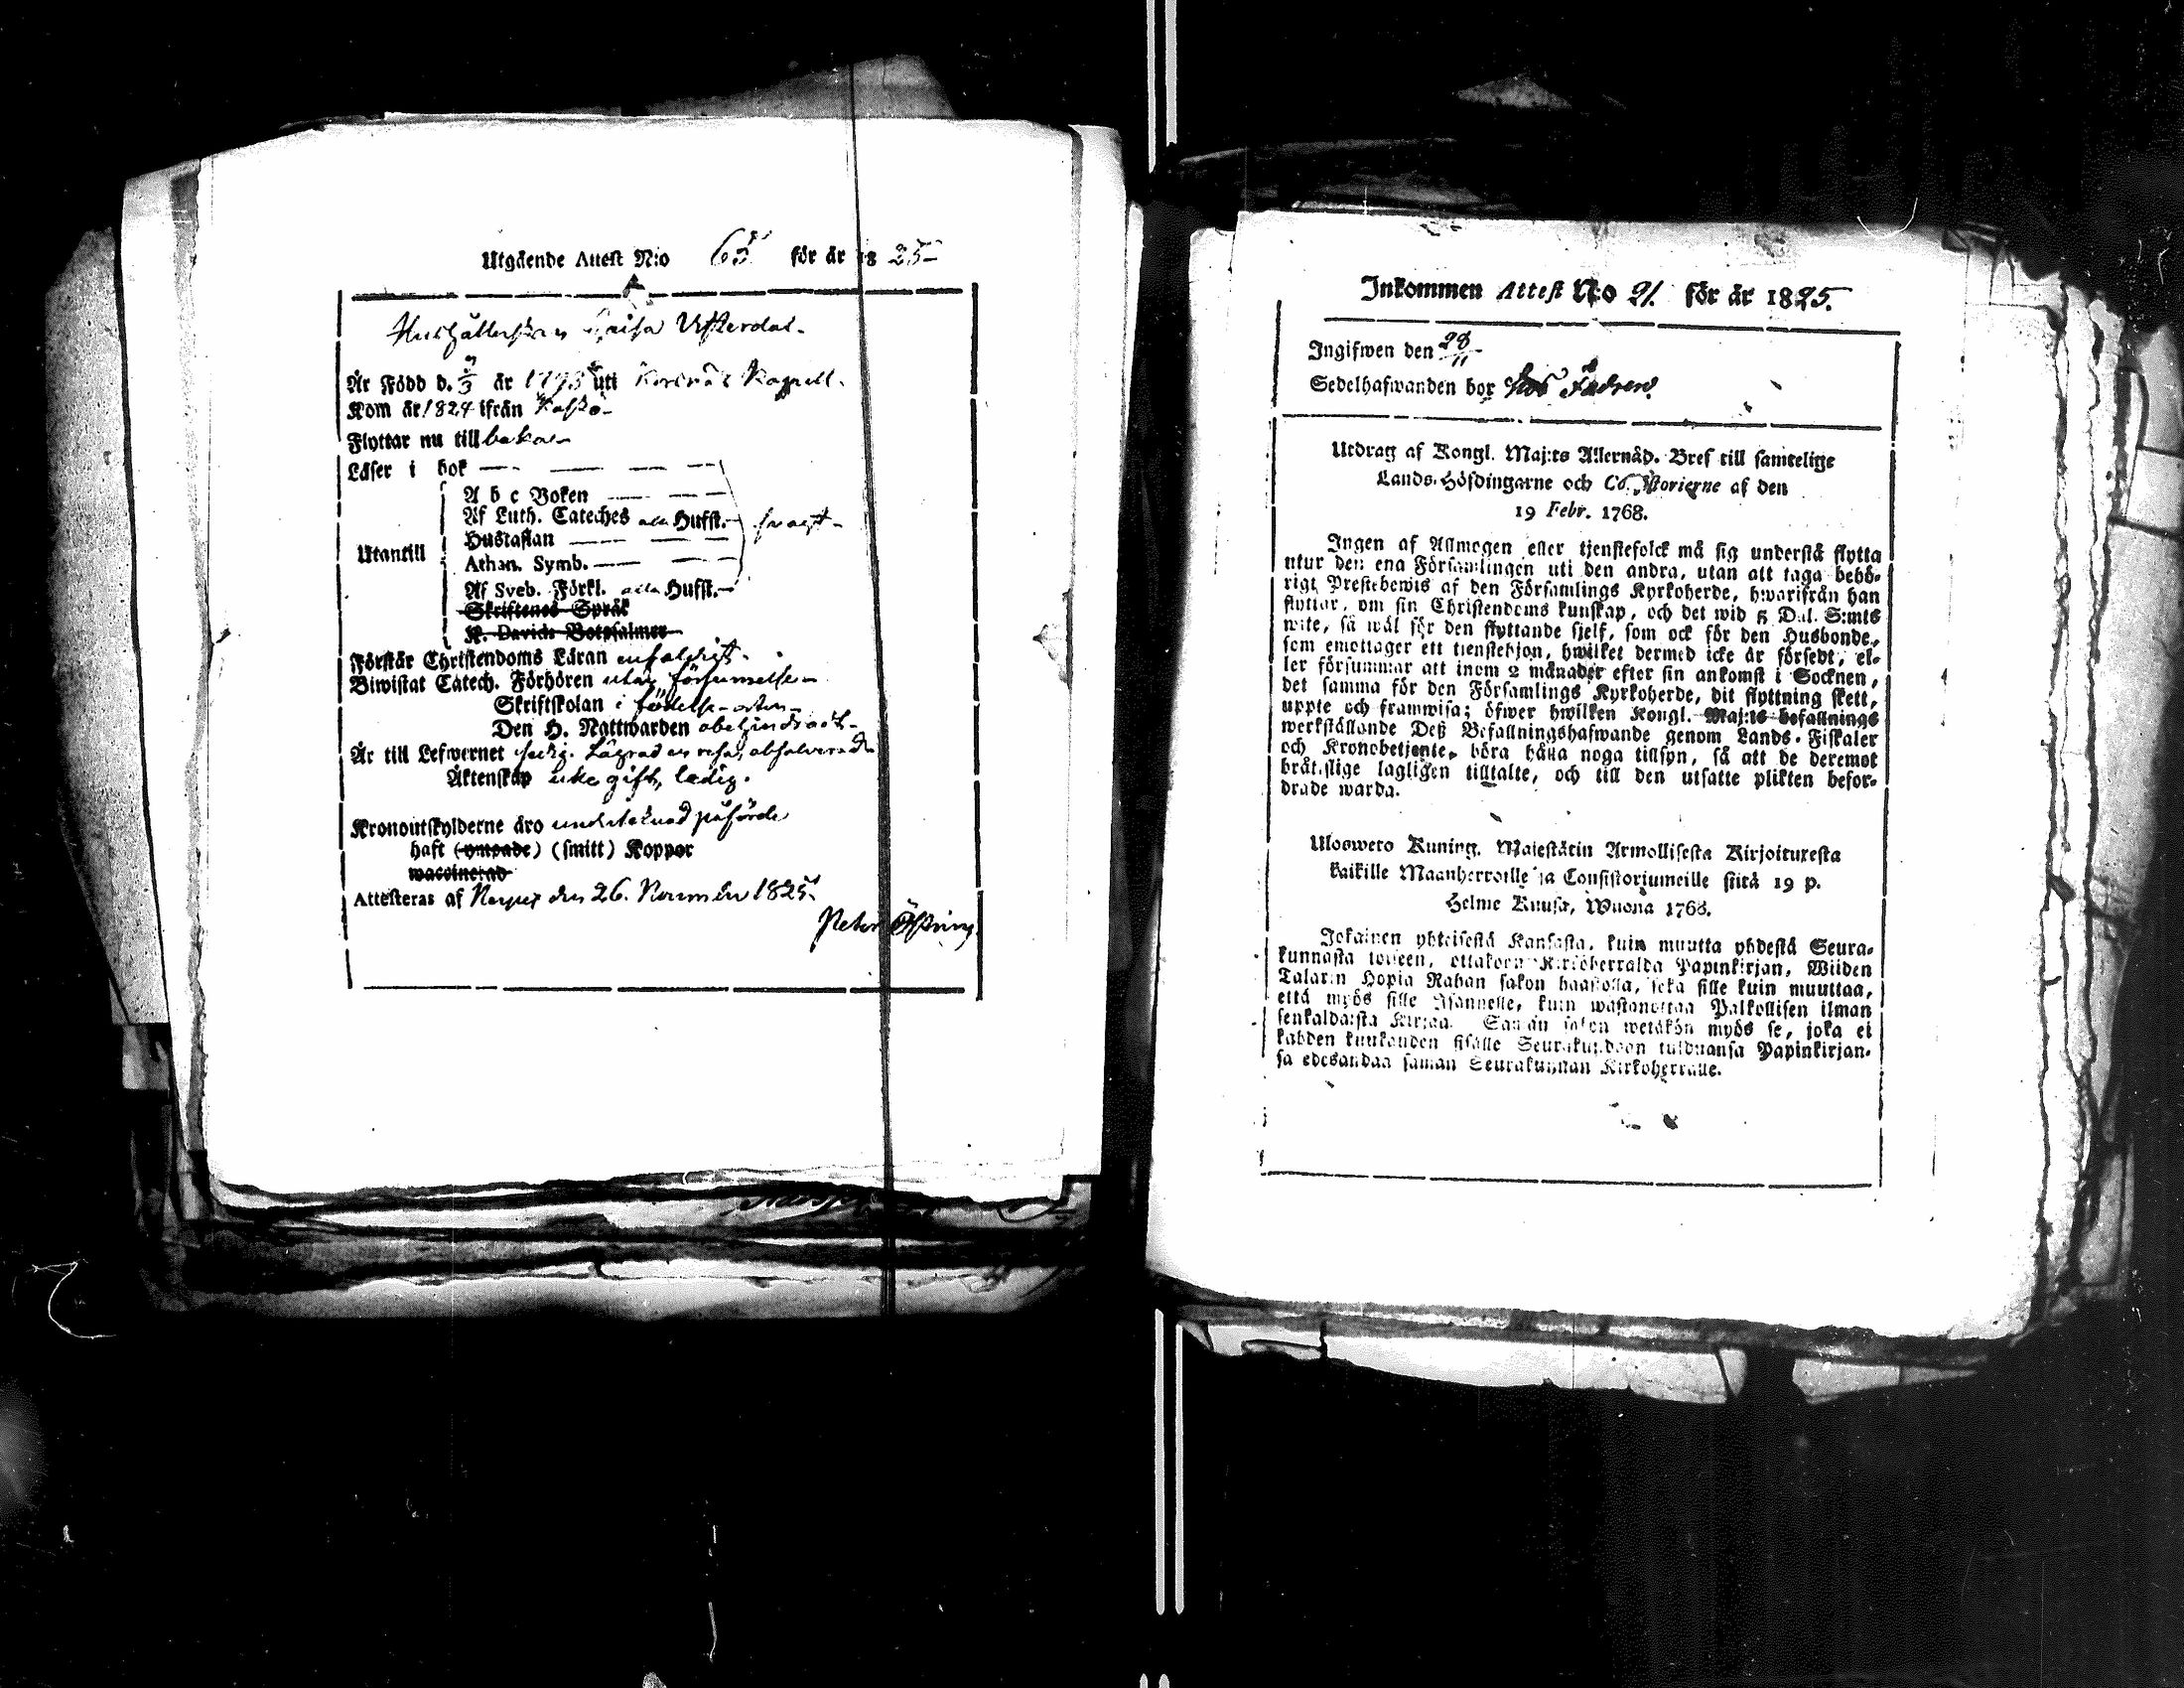 Utgående Attest N:o 65 för år 1825
Hushållerskan Caisa Westerdal
År Född d. 9/3 år 1793 uti Korsnäs Kapell.
Kom år 1824 ifrån Kaskö
Flyttar nu tillbakas
Läser i bok
A b c Boken
Af Luth. Cateches alla Hufst. svagt
Hustaflan
Utantill
Athan. Symb.
Af Sveb. Förkl. alla Hufst.
Skriftenes Språk
K. Davids Botpsalmer
Förstår Christendoms Läran enfaldigt
Biwistat Catech. Förhören utan försummelse
Skriftskolan i födelse-orten
Den H. Nattwarden obehindradt
År till Lefwernet sedig. Lägrad en resa, absolverad
Äktenskap icke gift, ledig.
Kronoutskylderne äro undertecknad påförde
haft (ympade) (smitt) Koppor
waccinerad
Attesteras af Närpes den 26. November 1825.
Peter
Inkommen Attest N:o 21. för år 1825.
Ingifwen den 28/11
Sedelhafwanden bor hos Fadren.
Utdrag af Kongl. Maj:ts Allernåd. Bref till samtelige
Lands-Höfdingarne och Consistorierne af den
19 Febr. 1768.
Ingen af Allmogen eller tjenstefolck må sig understå flytta
utur den ena Församlingen uti den andra, utan att taga behö-
rigt Prestebewis af den Församlings Kyrkoherde, hwarifrån han
flyttar, om sin Christendoms kunskap, och det wid 5 Dal. S:mts
wite, så wäl för den flyttande sjelf, som ock för den Husbonde,
som emottager ett tienstehjon, hwilket dermed icke är försedt, el-
ler försummar att inom 2 månader efter sin ankomst i Socknen,
det samma för den Församlings Kyrkoherde, dit flyttning skett,
uppte och framwisa; öfwer hwilken Kongl. Maj:ts befallnings
werkställande Deß Befallningshafwande genom Lands-Fiskaler
och Kronobetjente, böra hålla noga tillsyn, så att de deremot
brått.slige lagligen tilltalte, och till den utsatte plikten befor-
drade warda.
Ulosweto Kuning. Majestätin Armollisesta Kirjoituxesta
kaikille Maanherroille ja Consistoriumeille siitä 19 p.
Helme Kuusa, Wuona 1768.
Jokainen yhteisestä Kansasta, kuin muutta yhdestä Seura-
kunnasta toiseen, ottakoon Kirkoherralda Papinkirjan, Wiiden
Talarin Hopia Rahan sakon haastolla, sekä sille kuin muuttaa,
että myös sille Isännelle, kuin wastanottaa Palkollisen ilman
senkaldaista Kirjaa. Saman sakon wetäkön myös se, joka ei
kahden kuukauden sisälle Seurakundaan tulduansa Papinkirjan-
sa edesandaa saman Seurakunnan Kirkoherralle.